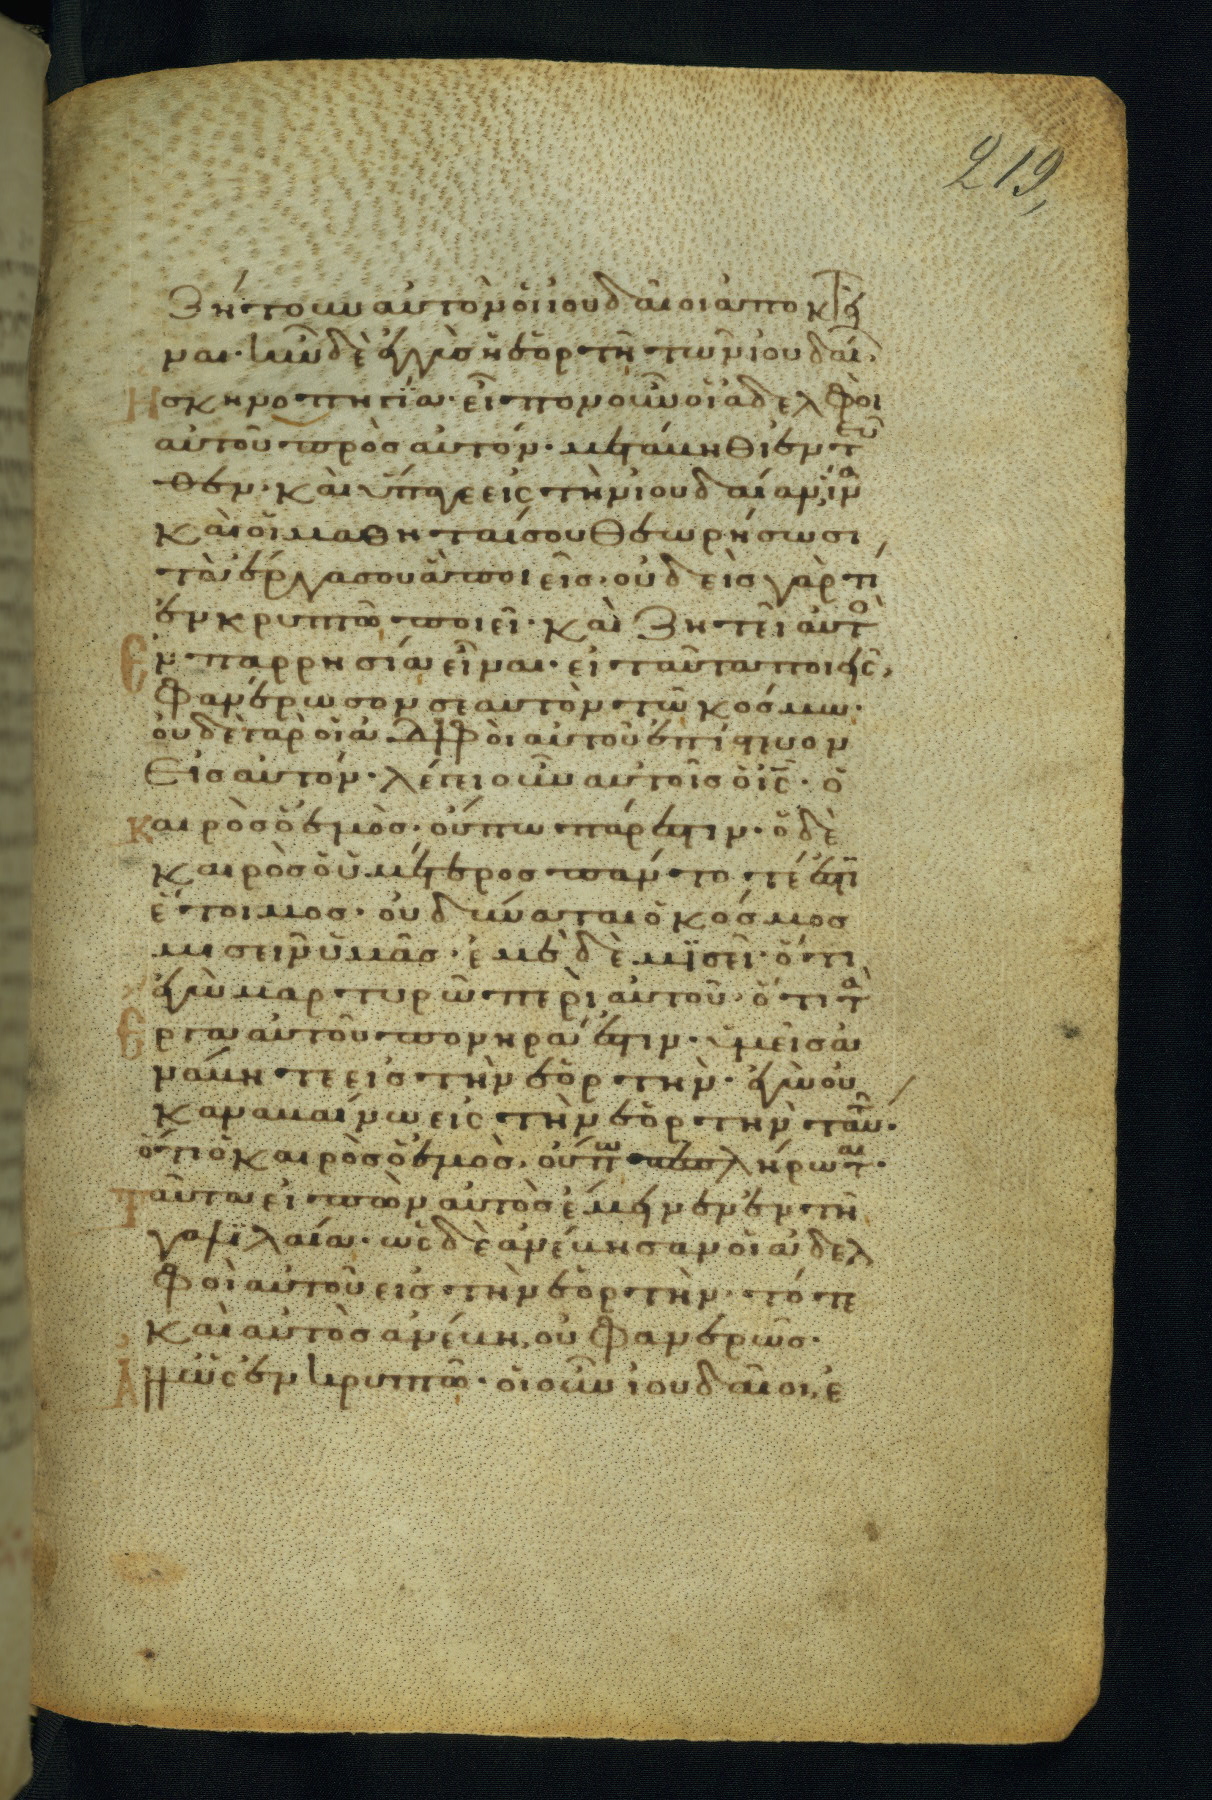 219,
ζήτουν αὐτὸν οἱ ἰουδαῖοι ἀποκτεῖ
ναι· ἦν δὲ ἐγγὺς ἡ ἑορτὴ τῶν ἰουδαί·
Ἡ σκηνοπηγία· εἶπον οὖν οἱ ἀδελφοὶ
αὐτοῦ πρὸς αὐτόν· μετάβηθι ἐντεῦ
θεν· καὶ ὕπαγε εἰς τὴν ἰουδαίαν, ἵνα
καὶ οἱ μαθηταί σου θεωρήσωσι
τὰ ἔργα σου ἃ ποιεῖς· οὐδεὶς γάρ τι
ἐν κρυπτῶ ποιεῖ· καὶ ζητεῖ αὐτὸ
Ἐν παρρησία εἶναι· εἰ ταῦτα ποιεῖς,
φανέρωσον σεαυτὸν τῶ κόσμω·
οὐδὲ γὰρ οἱ ἀδελφοὶ αὐτοῦ ἐπίστευον
Εἰς αὐτόν· λέγει οὖν αὐτοῖς ὁ ἰς· ὁ
Καιρὸς ὁ ἐμὸς· οὔπω πάρεστιν· ὁ δὲ
καιρὸς ὁ ὑμέτερος πάντοτέ ἐστι
ἕτοιμος· οὐ δύναται ὁ κόσμος
μισεῖν ὑμᾶς· ἐμὲ δὲ μισεῖ· ὅτι
ἐγὼ μαρτυρῶ περὶ αὐτοῦ· ὅτι τὰ
Ἔργα αὐτοῦ πονηρά ἐστιν· ὑμεῖς ἀ
νάβητε εἰς τὴν ἑορτὴν· ἐγὼ οὐ
κ ἀναβαίνω εἰς τὴν ἑορτὴν ταύτην·
ὅτι ὁ καιρὸς ὁ ἐμὸς, οὔπω πεπλήρωται·
Ταῦτα εἰπὼν αὐτὸς ἔμεινεν ἐν τῆ
γαλιλαία· ὡς δὲ ἀνέβησαν οἱ ἀδελ
φοὶ αὐτοῦ εἰς τὴν ἑορτὴν· τότε
καὶ αὐτὸς ἀνέβη, οὐ φανερῶς·
Ἀλλ' ὡς ἐν κρυπτῶ· οἱ οὖν ἰουδαῖοι, ἐ